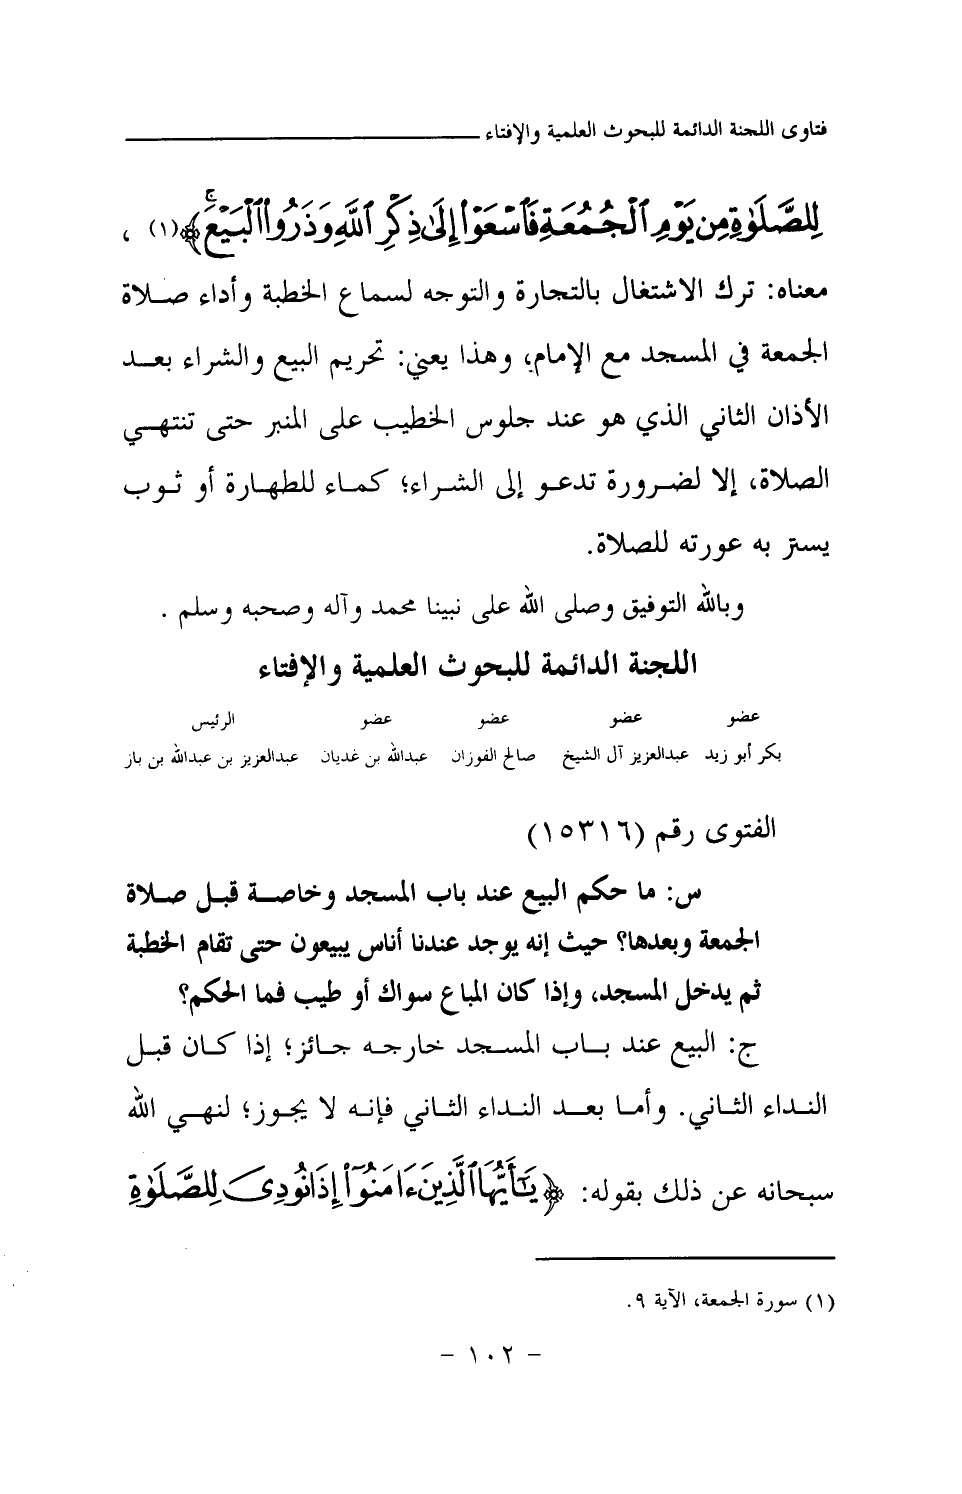 فتاوى اللجنة الدائمة للبحوث العلمية والإفتاء
لِلصَّلَوٰةِ مِن يَوْمِ ٱلْجُمُعَةِ فَٱسْعَوْا۟ إِلَىٰ ذِكْرِ ٱللَّهِ وَذَرُوا۟ ٱلْبَيْعَ ۚ﴾(١) ،
معناه: ترك الاشتغال بالتجارة والتوجه لسماع الخطبة وأداء صلاة
الجمعة في المسجد مع الإمام، وهذا يعني: تحريم البيع والشراء بعد
الأذان الثاني الذي هو عند جلوس الخطيب على المنبر حتى تنتهي
الصلاة، إلا لضرورة تدعو إلى الشراء؛ كماء للطهارة أو ثوب
يستر به عورته للصلاة.
وبالله التوفيق وصلى الله على نبينا محمد وآله وصحبه وسلم .
اللجنة الدائمة للبحوث العلمية والإفتاء
عضو عضو عضو عضو الرئيس
بكر أبو زيد عبدالعزيز آل الشيخ صالح الفوزان عبدالله بن غديان عبدالعزيز بن عبدالله بن باز
الفتوى رقم (١٥٣١٦)
س: ما حكم البيع عند باب المسجد وخاصة قبل صلاة
الجمعة وبعدها؟ حيث إنه يوجد عندنا أناس يبيعون حتى تقام الخطبة
ثم يدخل المسجد، وإذا كان المباع سواك أو طيب فما الحكم؟
ج: البيع عند باب المسجد خارجه جائز؛ إذا كان قبل
النداء الثاني. وأما بعد النداء الثاني فإنه لا يجوز؛ لنهي الله
سبحانه عن ذلك بقوله: ﴿يَـٰٓأَيُّهَا ٱلَّذِينَ ءَامَنُوٓا۟ إِذَا نُودِىَ لِلصَّلَوٰةِ
(١) سورة الجمعة، الآية ٩.
- ١٠٢ -